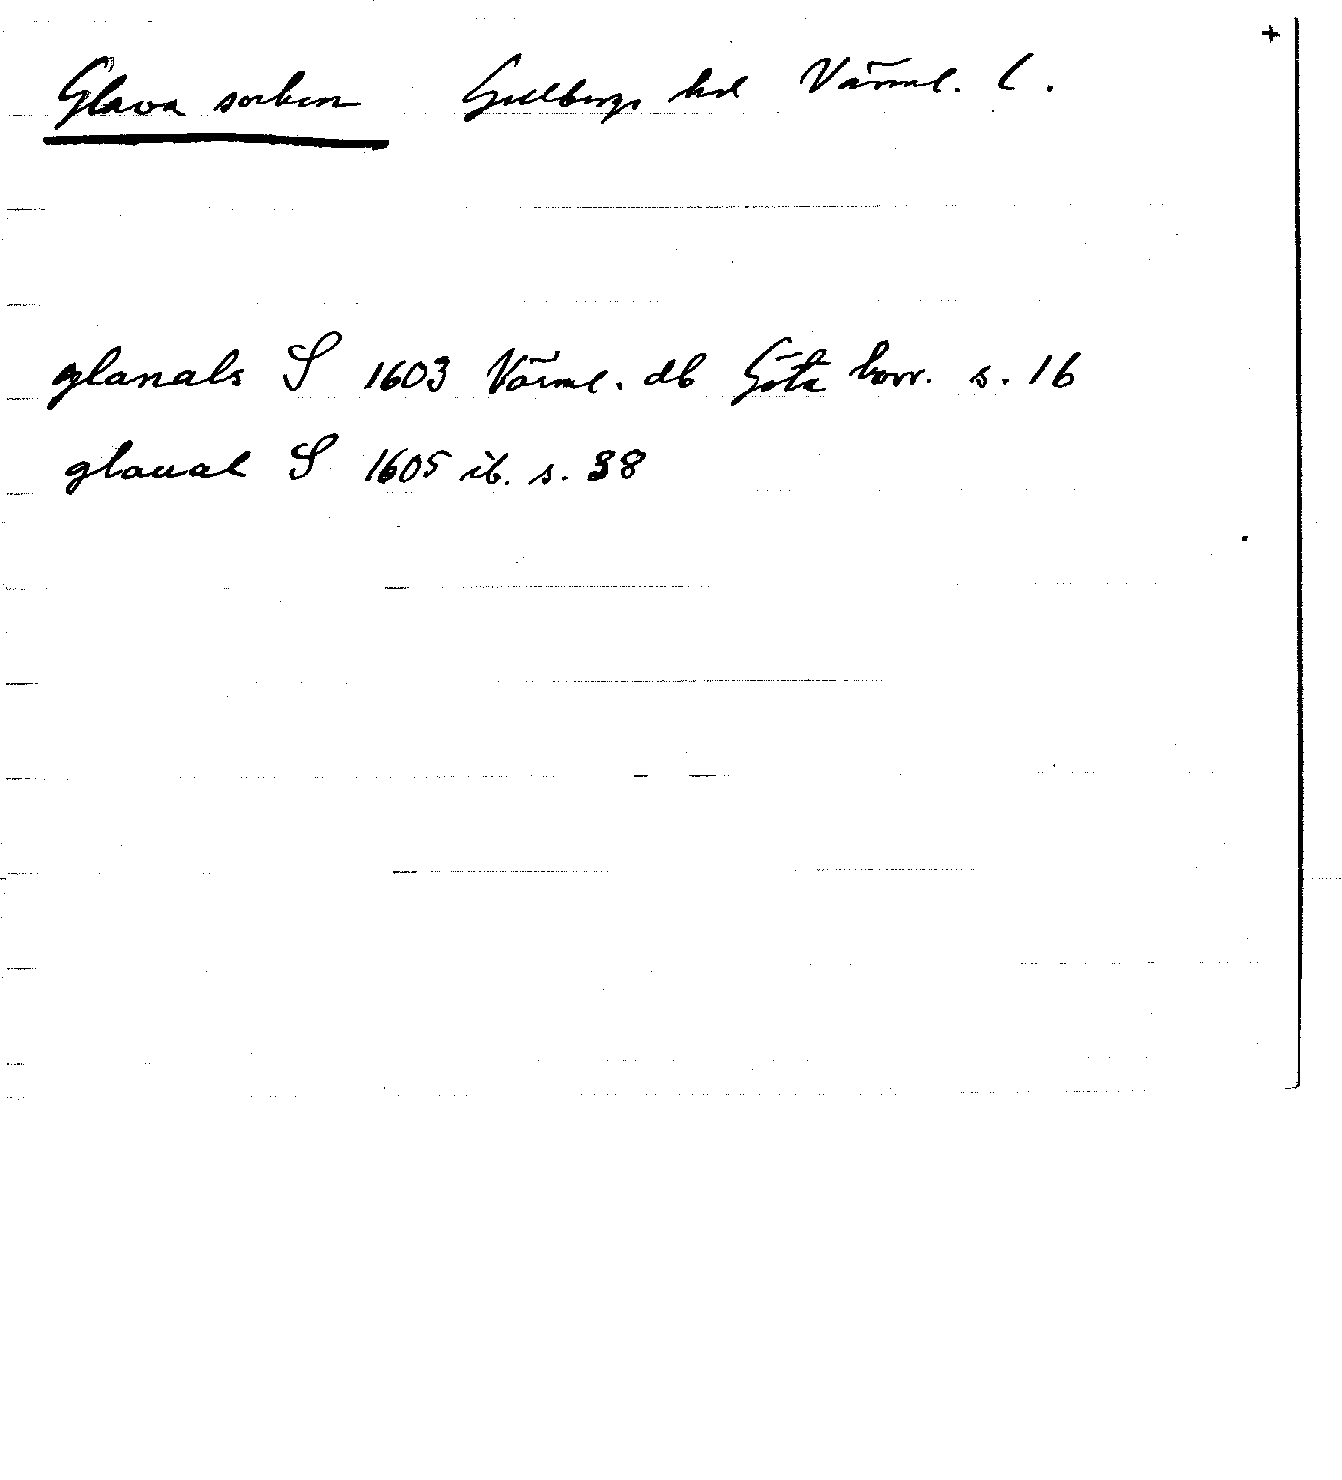 +
Glava socken Gillbergs hd Värml. l.
glanals S 1603 Värml. db Göta hovr. s. 16
glaual S 1605 ib. s. 38